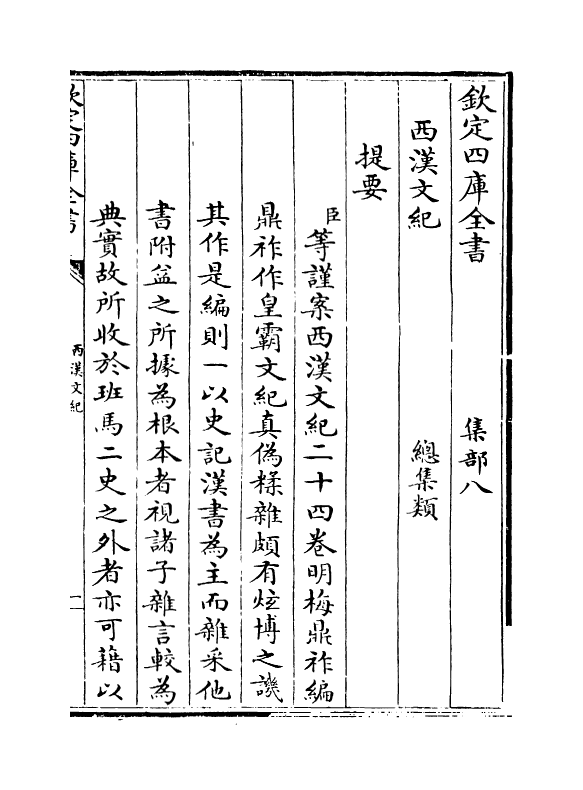 欽定四庫全書 集部八
西漢文紀 總集類
提要
臣等謹案西漢文紀二十四卷明梅鼎祚編
鼎祚作皇霸文紀真偽糅雜頗有炫博之譏
其作是編則一以史記漢書為主而雜采他
書附益之所據為根本者視諸子雜言較為
典實故所收於班馬二史之外者亦可藉以
欽定四庫全書
西漢文紀
一